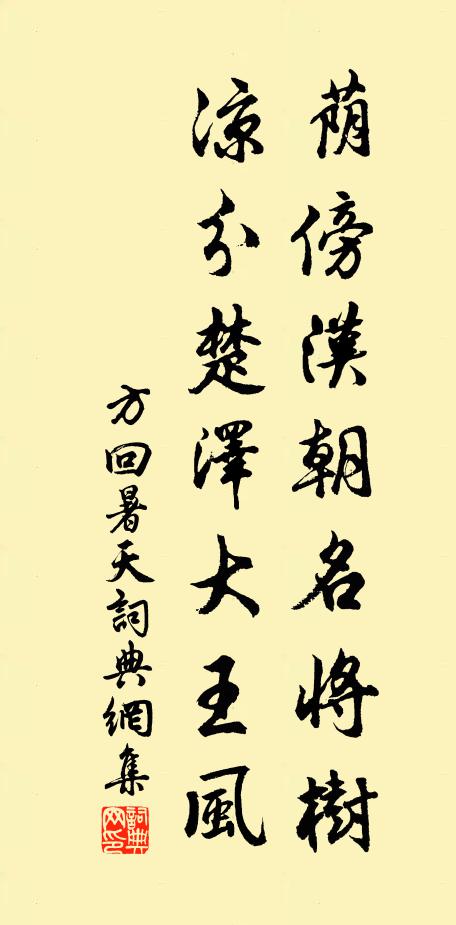 荫傍漢朝名将樹
涼分楚澤大王風
方回暑天詞典網集
詞典网印